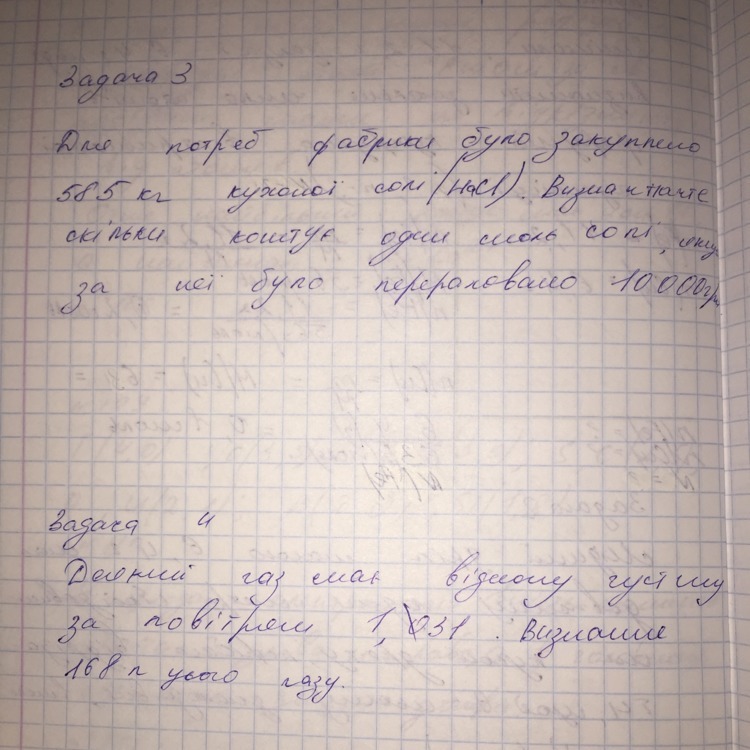 Задача 3
Для потреб фабрики було закуплено
585 кг кухоної солі (NaCl). Визначте
скільки коштує один моль солі, якщо
за неї було перераховано 10 000 грн
Задача 4
Деякий газ має відносну густину
за повітрям 1,031. Визначте
168 л цього газу.